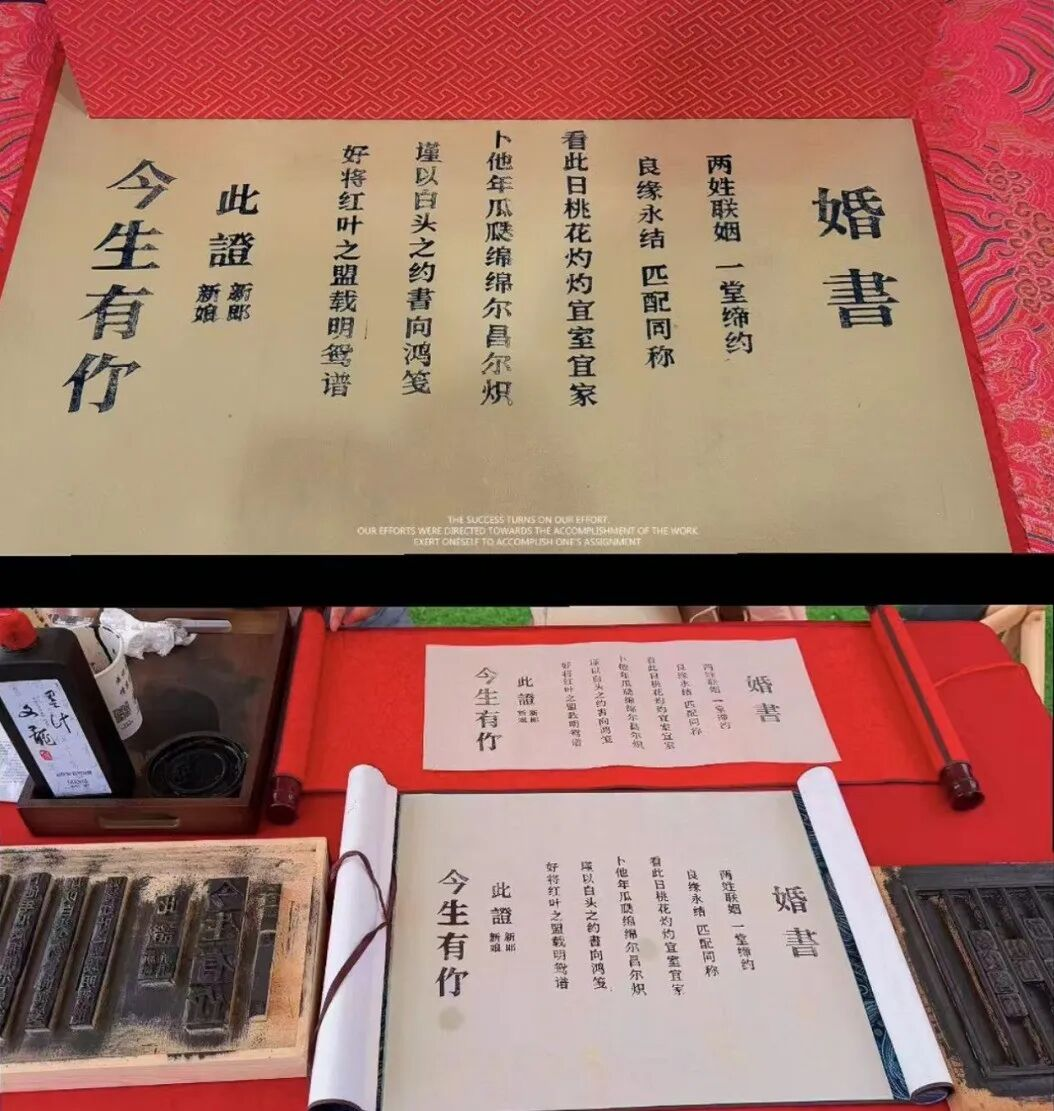 婚書
两姓联姻 一堂缔约
良缘永结 匹配同称
看此日桃花灼灼宜室宜家
卜他年瓜瓞绵绵尔昌尔炽
谨以白头之约書向鸿笺
好将红叶之盟载明鸳谱
此證
新郎
新娘
今生有你
THE SUCCESS TURNS ON OUR EFFORT.
OUR EFFORTS WERE DIRECTED TOWARDS THE ACCOMPLISHMENT OF THE WORK
EXERT ONESELF TO ACCOMPLISH ONE'S ASSIGNMENT
婚書
两姓联姻 一堂缔约
良缘永结 匹配同称
看此日桃花灼灼宜室宜家
卜他年瓜瓞绵绵尔昌尔炽
谨以白头之约書向鸿笺
好将红叶之盟载明鸳谱
此證
新郎
新娘
今生有你
墨汁
文龍
婚書
两姓联姻 一堂缔约
良缘永结 匹配同称
看此日桃花灼灼宜室宜家
卜他年瓜瓞绵绵尔昌尔炽
谨以白头之约書向鸿笺
好将红叶之盟载明鸳谱
此證
新郎
新娘
今生有你